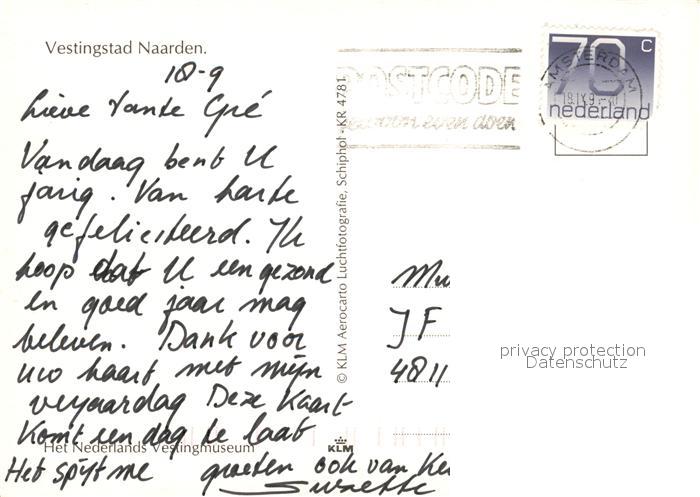 Vestingstad Naarden.
18-9
Lieve Tante Gré
Vandaag bent U
jarig. Van harte
gefeliciteerd. Ik
hoop dat U een gezond
en goed jaar mag
beleven. Dank voor
uw kaart met mijn
verjaardag Deze Kaart
Komt een dag te laat
Het Nederlands Vestingmuseum
Het spijt me groeten ook van
Suzette
© KLM Aerocarto Luchtfotografie, Schiphol - KR 4781
KLM
POSTCODE
gewoon even doen
AMSTERDAM
70 c
nederland
JF
4811
privacy protection
Datenschutz